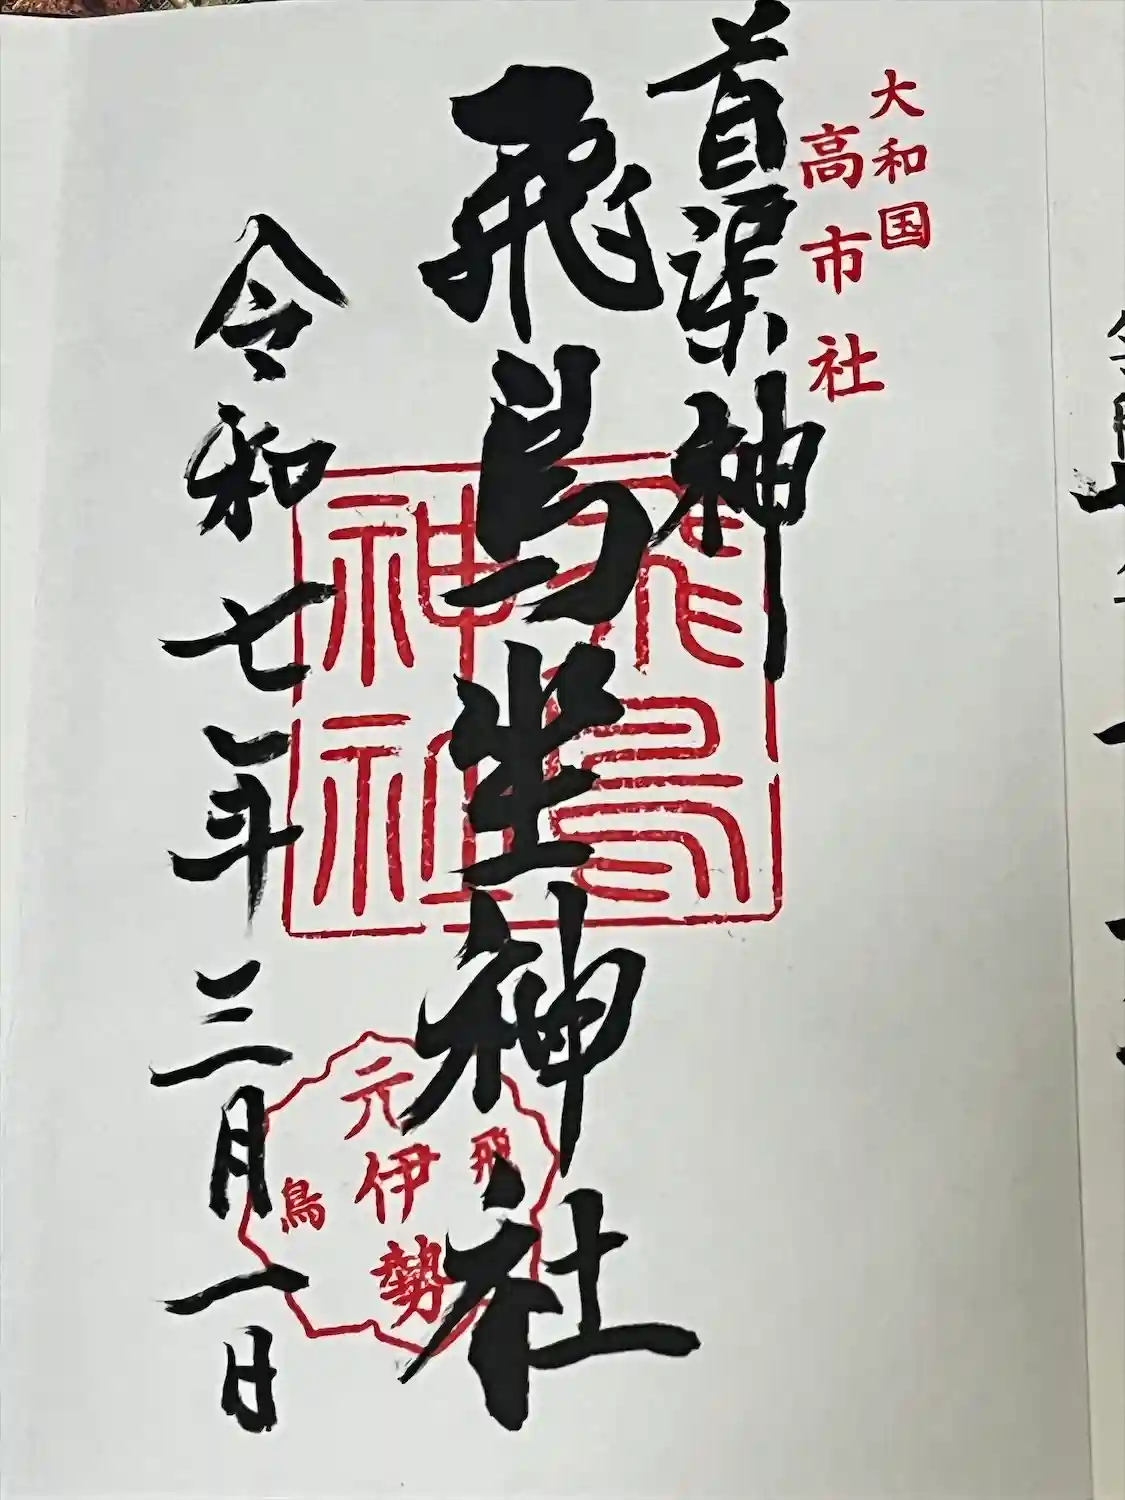 大和国
高市社
首渠神
飛鳥坐神社
令和七年三月一日
飛鳥
神社
飛
元伊勢
鳥